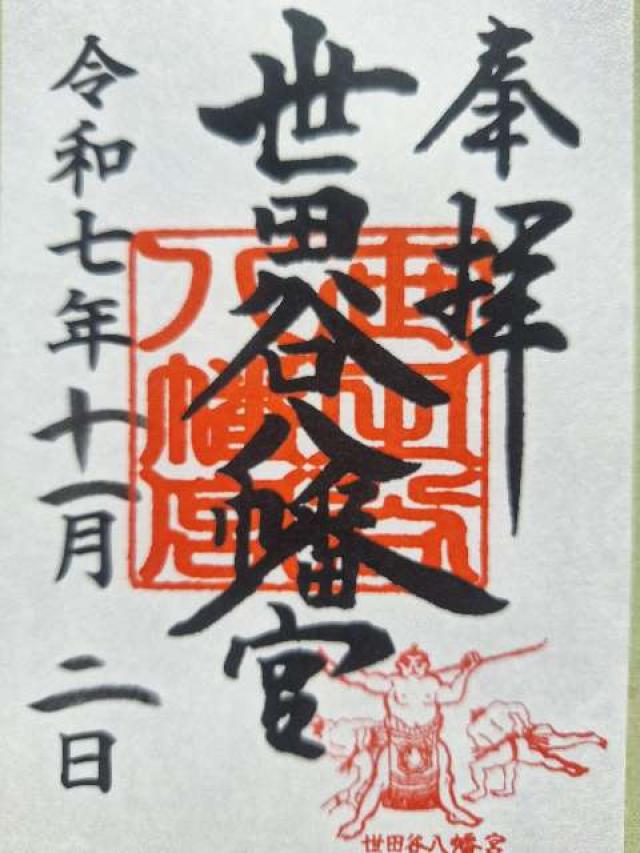 奉拝
世田谷八幡宮
世田谷
八幡宮
令和七年十一月二日
世田谷八幡宮